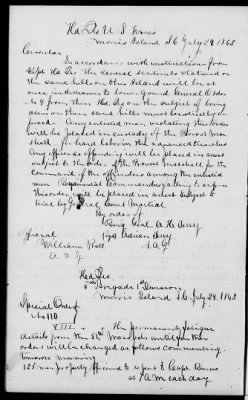 Hd. Qrs U. S. Forces
Morris Island S.C. July 29 1863
Circular
In accordance with instructions from
Dept. Hd. Qrs the several sentinels stationed on
the sand hills on this Island will be at
once withdrawn to lower ground General Order
No 9 from these Hd. Qrs on the subject of being
seen on these sand hills must be strictly en
forced. Any enlisted men violating this order
will be placed in custody of the Provost Mar
shal for hard labor in the advanced trenches
Any officers offending will be placed in arrest
subject to the order of the Provost Marshal for the
command of the offenders among the enlisted
men Regimental Commanders failing to enforce
this order will be placed in arrest subject to
trial by General Court Martial
By order of
Brig Genl A. H. Terry
Signed Adrian Terry
A.A.G.
Signed
William
A. A. G.
Hd. Qrs.
Brigade 1st Division
Morris Island S.C. July 29. 1863
Special Order
No 110
VIII The permanent fatigue
details from the 54th Mass Vols until further
orders will be changed as follows commencing
tomorrow morning
125 men properly officered to report to Capt.
at A M each day